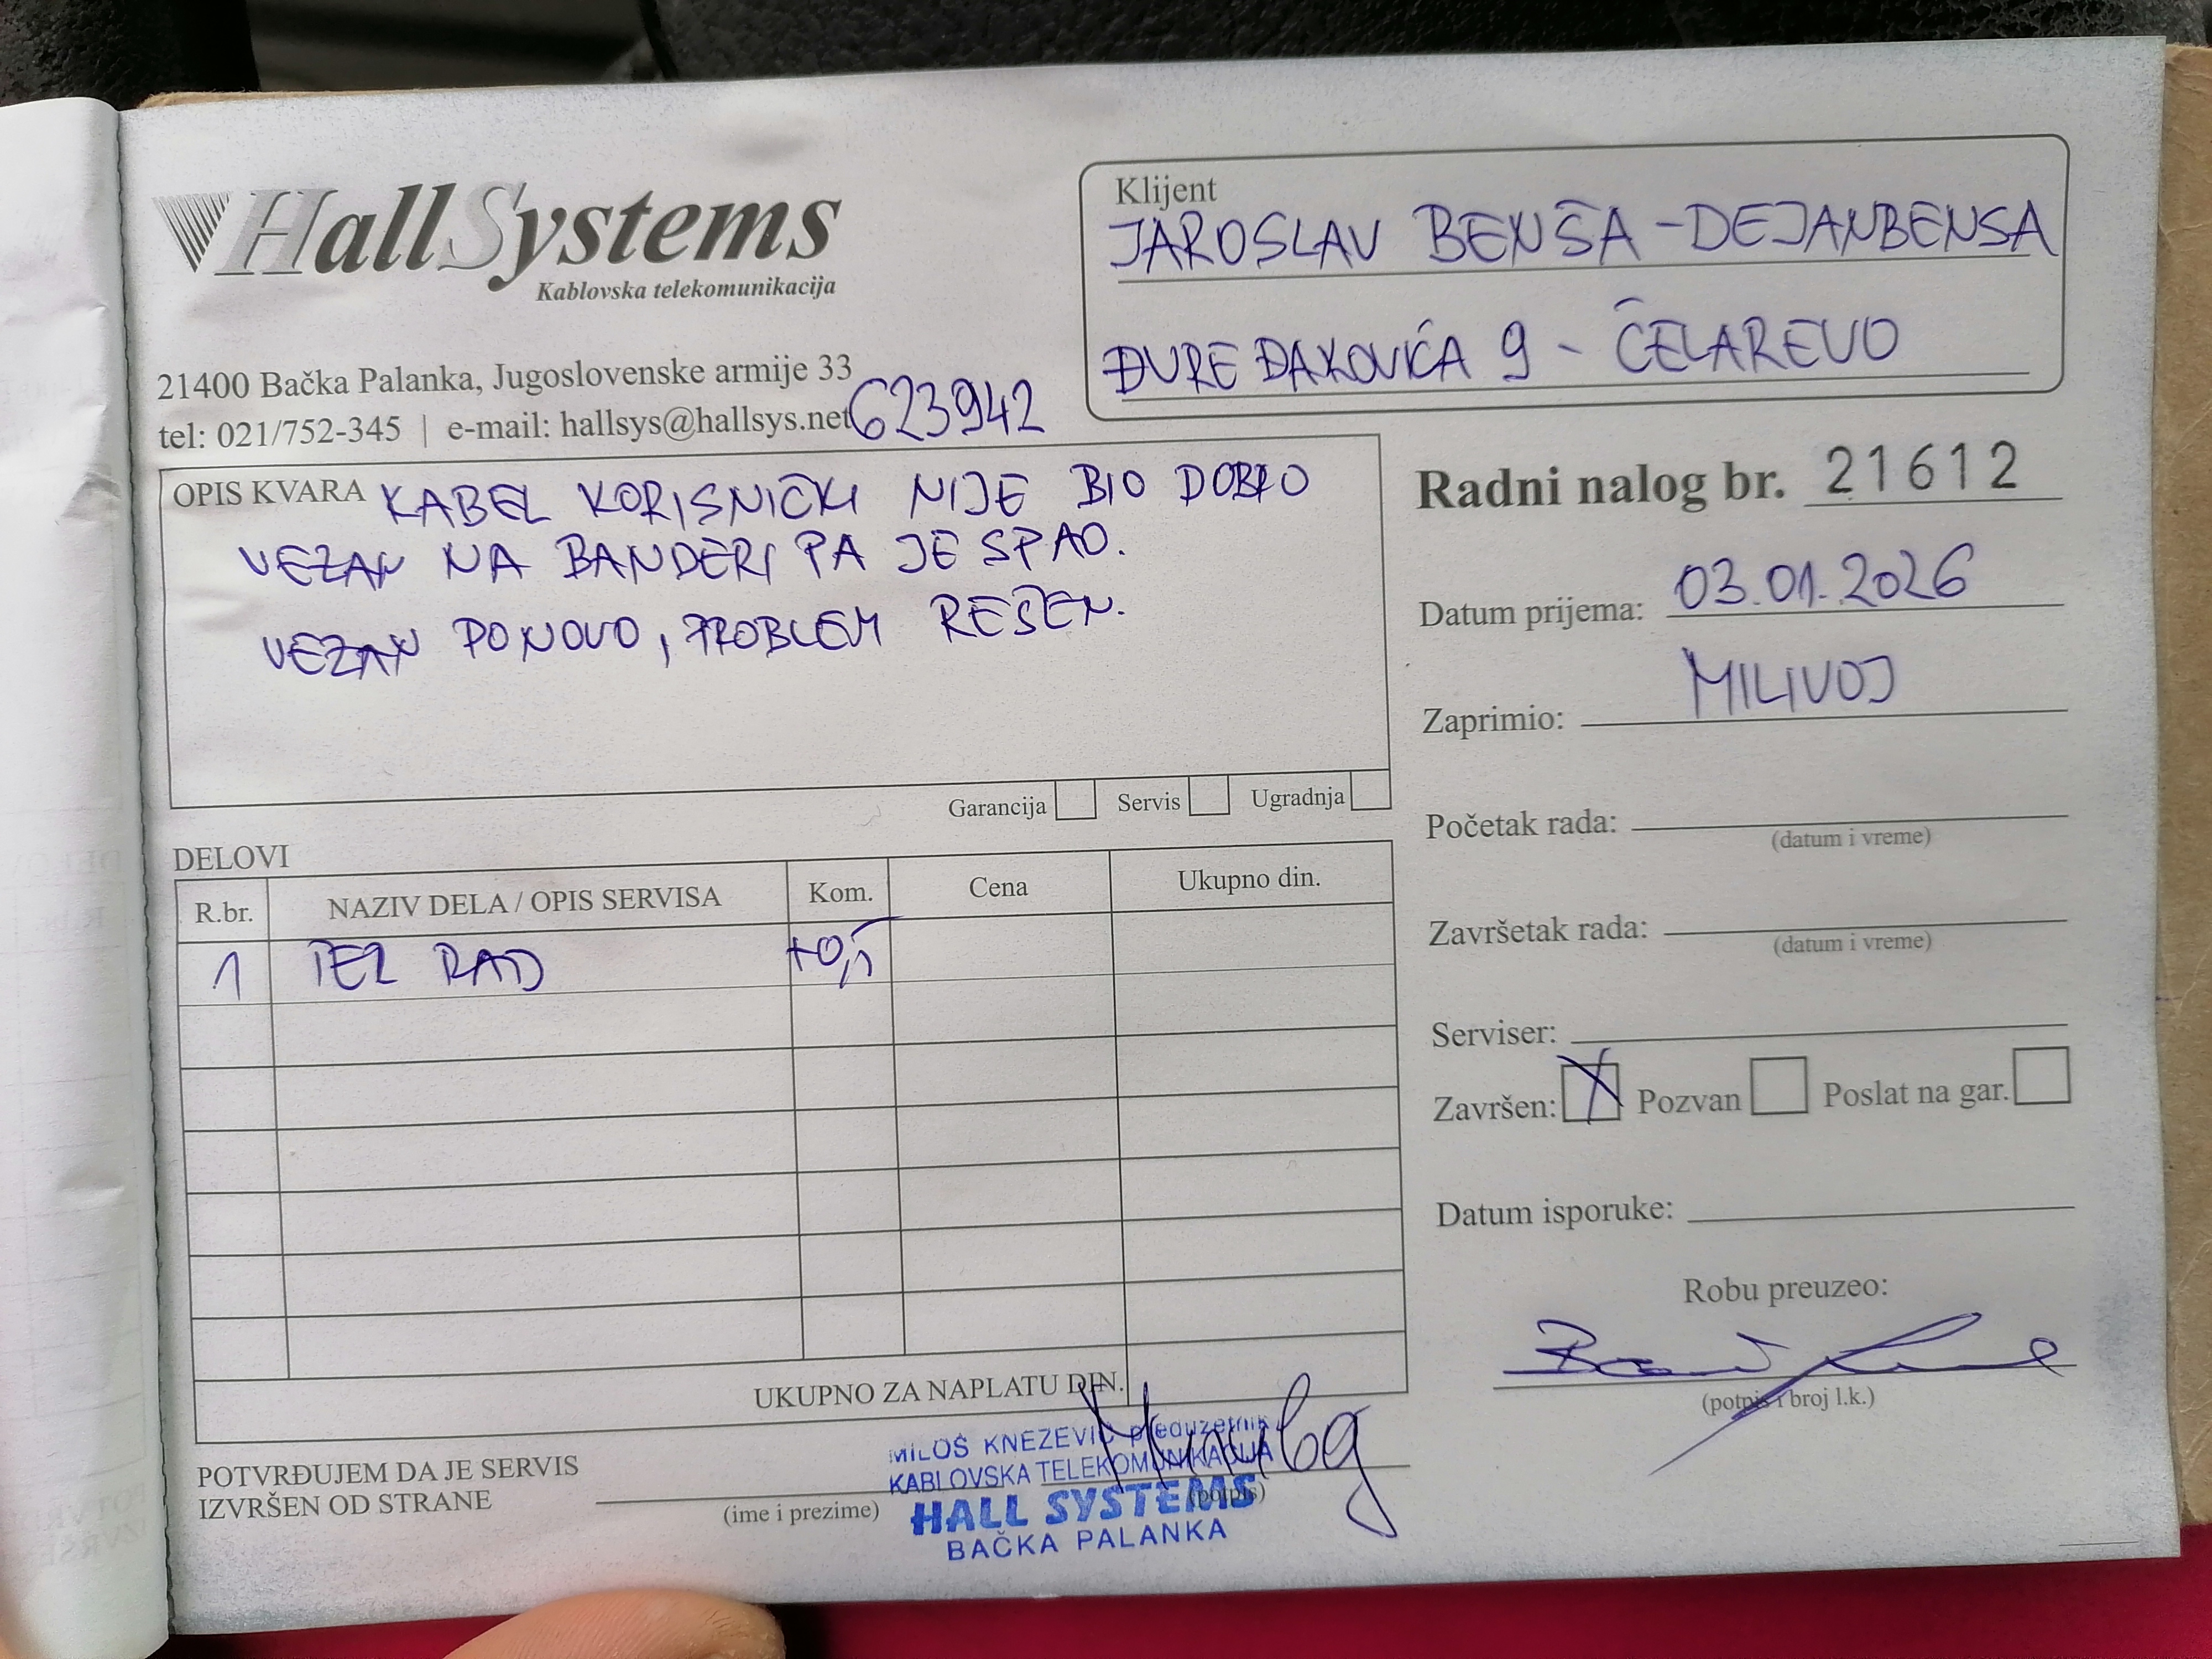 HallSystems
Kablovska telekomunikacija
21400 Bačka Palanka, Jugoslovenske armije 33
tel: 021/752-345 | e-mail: hallsys@hallsys.net
623942
Klijent
JAROSLAV BENŠA - DEJANBENSA
ĐURE ĐAKOVIĆA 9 - ČELAREVO
OPIS KVARA KABEL KORISNIČKI NIJE BIO DOBRO
VEZAN NA BANDERI PA JE SPAO.
VEZAN PONOVO, PROBLEM REŠEN.
Garancija Servis Ugradnja
Radni nalog br. 21612
Datum prijema: 03.01.2026
Zaprimio: MILIVOJ
Početak rada:
(datum i vreme)
Završetak rada:
(datum i vreme)
Serviser:
Završen: X Pozvan Poslat na gar.
Datum isporuke:
Robu preuzeo:
(potpis i broj l.k.)
DELOVI
R.br. NAZIV DELA / OPIS SERVISA Kom. Cena Ukupno din.
1 RAD +0,5
UKUPNO ZA NAPLATU DIN.
POTVRĐUJEM DA JE SERVIS
IZVRŠEN OD STRANE
(ime i prezime)
(potpis)
MILOŠ KNEŽEVIĆ preduzetnik
KABLOVSKA TELEKOMUNIKACIJA
HALL SYSTEMS
BAČKA PALANKA